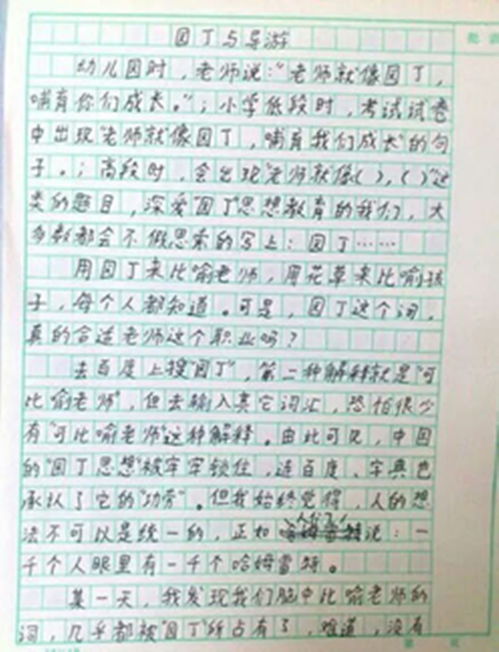 园丁与导游
幼儿园时，老师说：“老师就像园丁，
哺育你们成长。”；小学低段时，考试试卷
中出现“老师就像园丁，哺育我们成长”的句
子。；高段时，会出现“老师就像（），（）”这
类的题目，深爱“园丁”思想教育的我们，大
多数都会不假思索的写上：园丁……
用园丁来比喻老师，用花草来比喻孩
子，每个人都知道。可是，园丁这个词，
真的合适老师这个职业吗？
去百度上搜“园丁”，第二种解释就是“可
比喻老师”，但去输入其它词汇，恐怕很少
有“可比喻老师”这种解释。由此可见，中国
的“园丁思想”被牢牢锁住，连百度、字典也
承认了它的“功劳”。但我始终觉得，人的想
法不可以是统一的，正如 说：一
千个人眼里有一千个哈姆雷特。
某一天，我发现我们脑中比喻老师的
词，几乎都被“园丁”所占有了，难道，没有